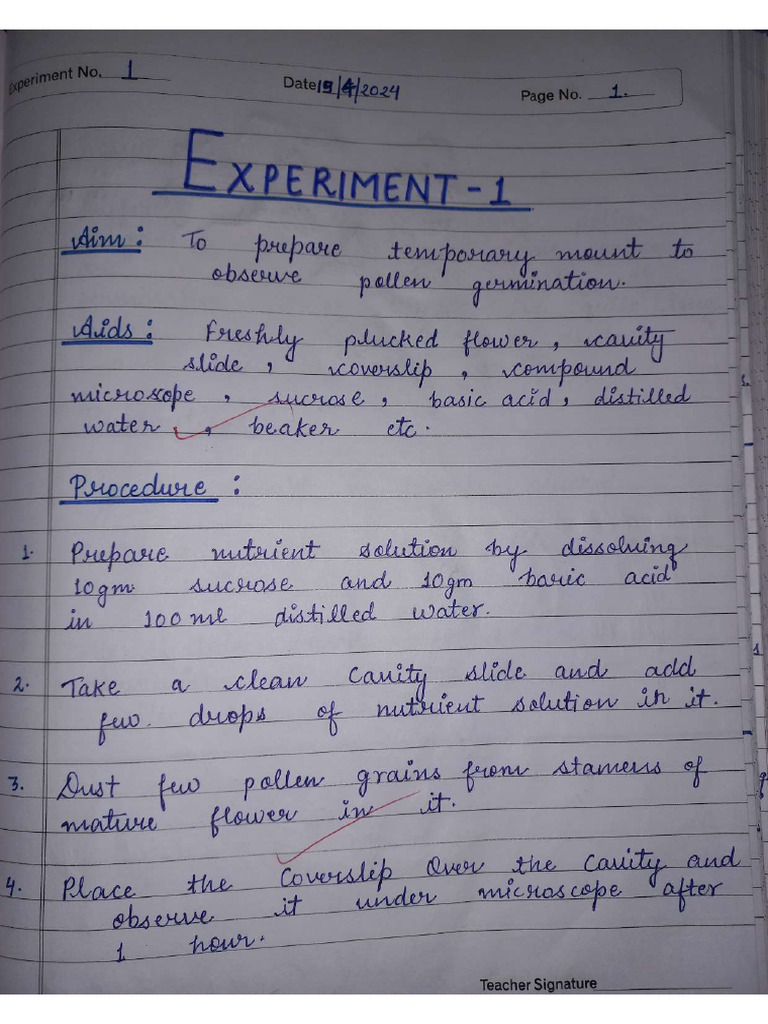 Experiment No. 1 Date 19/4/2024 Page No. 1.
EXPERIMENT-1
Aim: To prepare temporary mount to
observe pollen germination.
Aids: Freshly plucked flower, cavity
slide, coverslip, compound
microscope, sucrose, basic acid, distilled
water, beaker etc.
Procedure:
1. Prepare nutrient solution by dissolving
10gm sucrose and 10gm boric acid
in 100 ml distilled water.
2. Take a clean cavity slide and add
few. drops of nutrient solution in it.
3. Dust few pollen grains from stamens of
mature flower in it.
4. Place the coverslip over the cavity and
observe it under microscope after
1 hour.
Teacher Signature